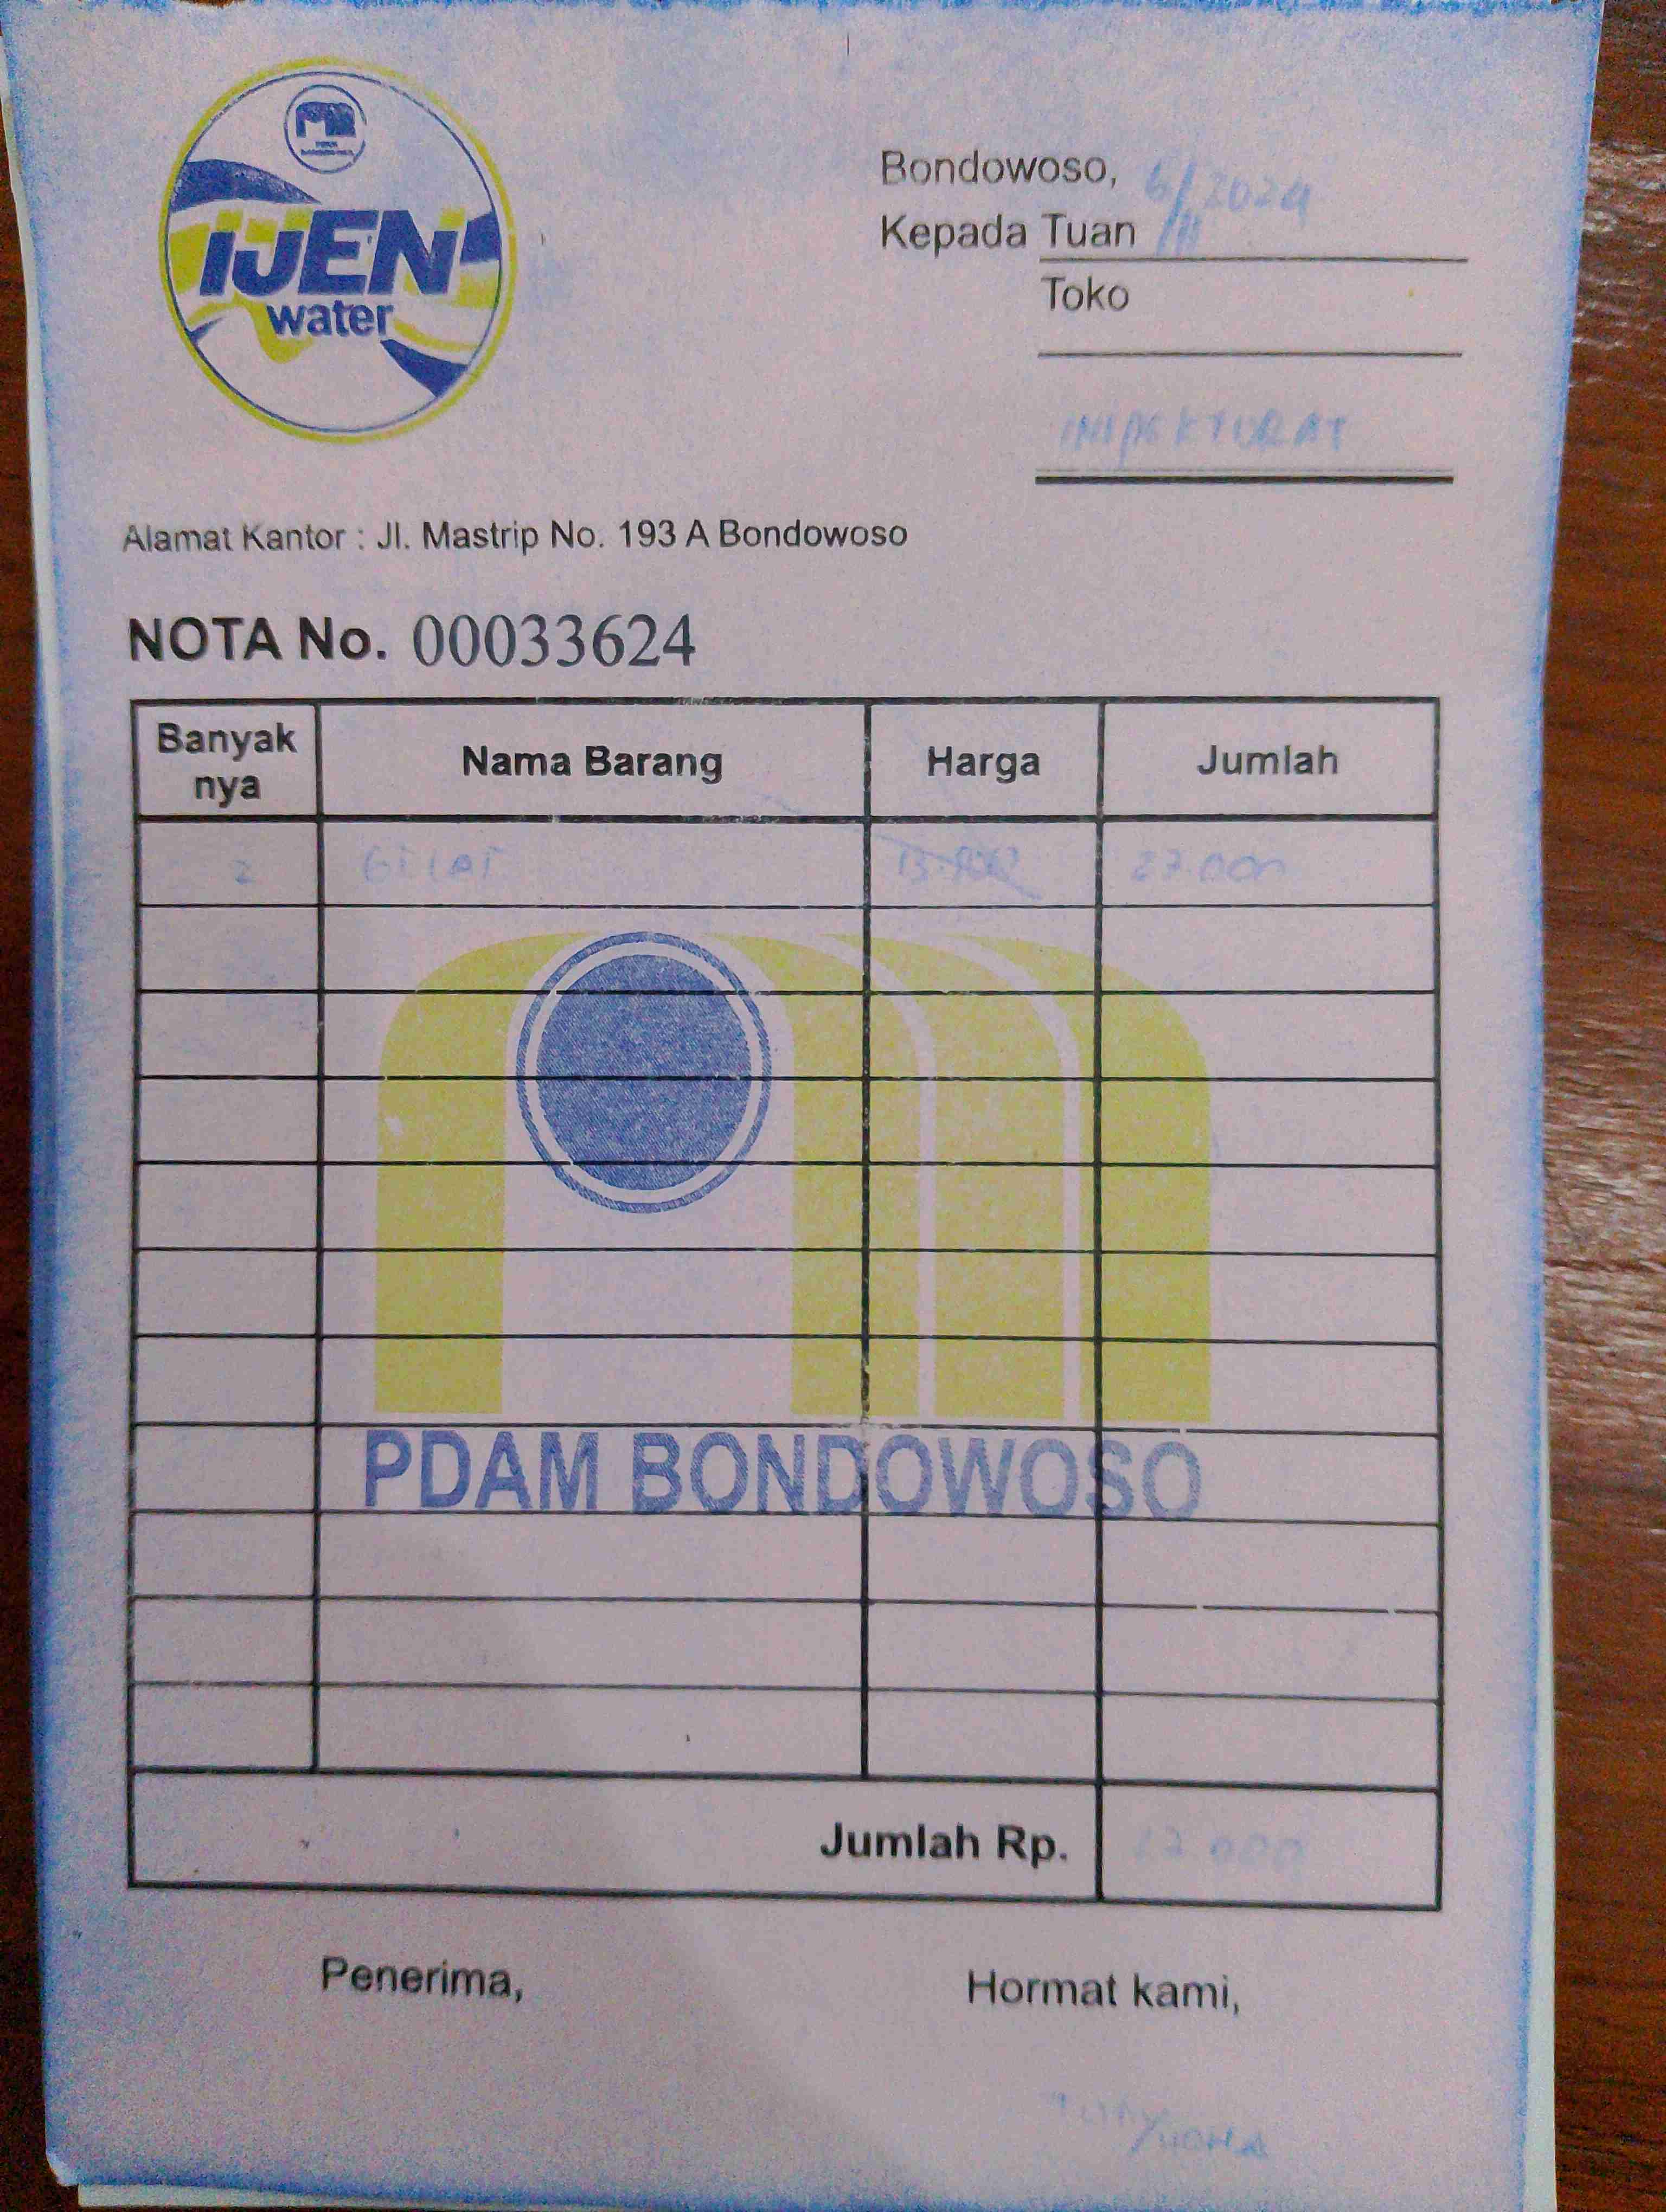 IJEN
water
Bondowoso, 6/ 2024
Kepada Tuan
Toko
INSPEKTORAT
Alamat Kantor : Jl. Mastrip No. 193 A Bondowoso
NOTA No. 00033624
Banyak nya Nama Barang Harga Jumlah
2 27.000
PDAM BONDOWOSO
Jumlah Rp. 27.000
Penerima, Hormat kami,